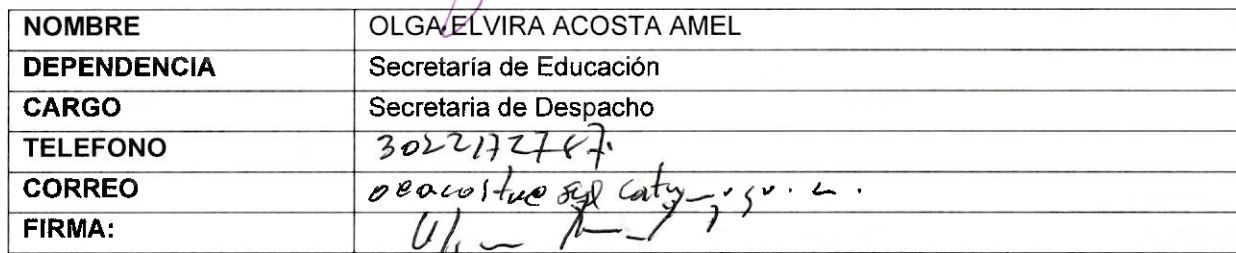 NOMBRE OLGA ELVIRA ACOSTA AMEL
DEPENDENCIA Secretaría de Educación
CARGO Secretaria de Despacho
TELEFONO 3022172787.
CORREO
FIRMA: